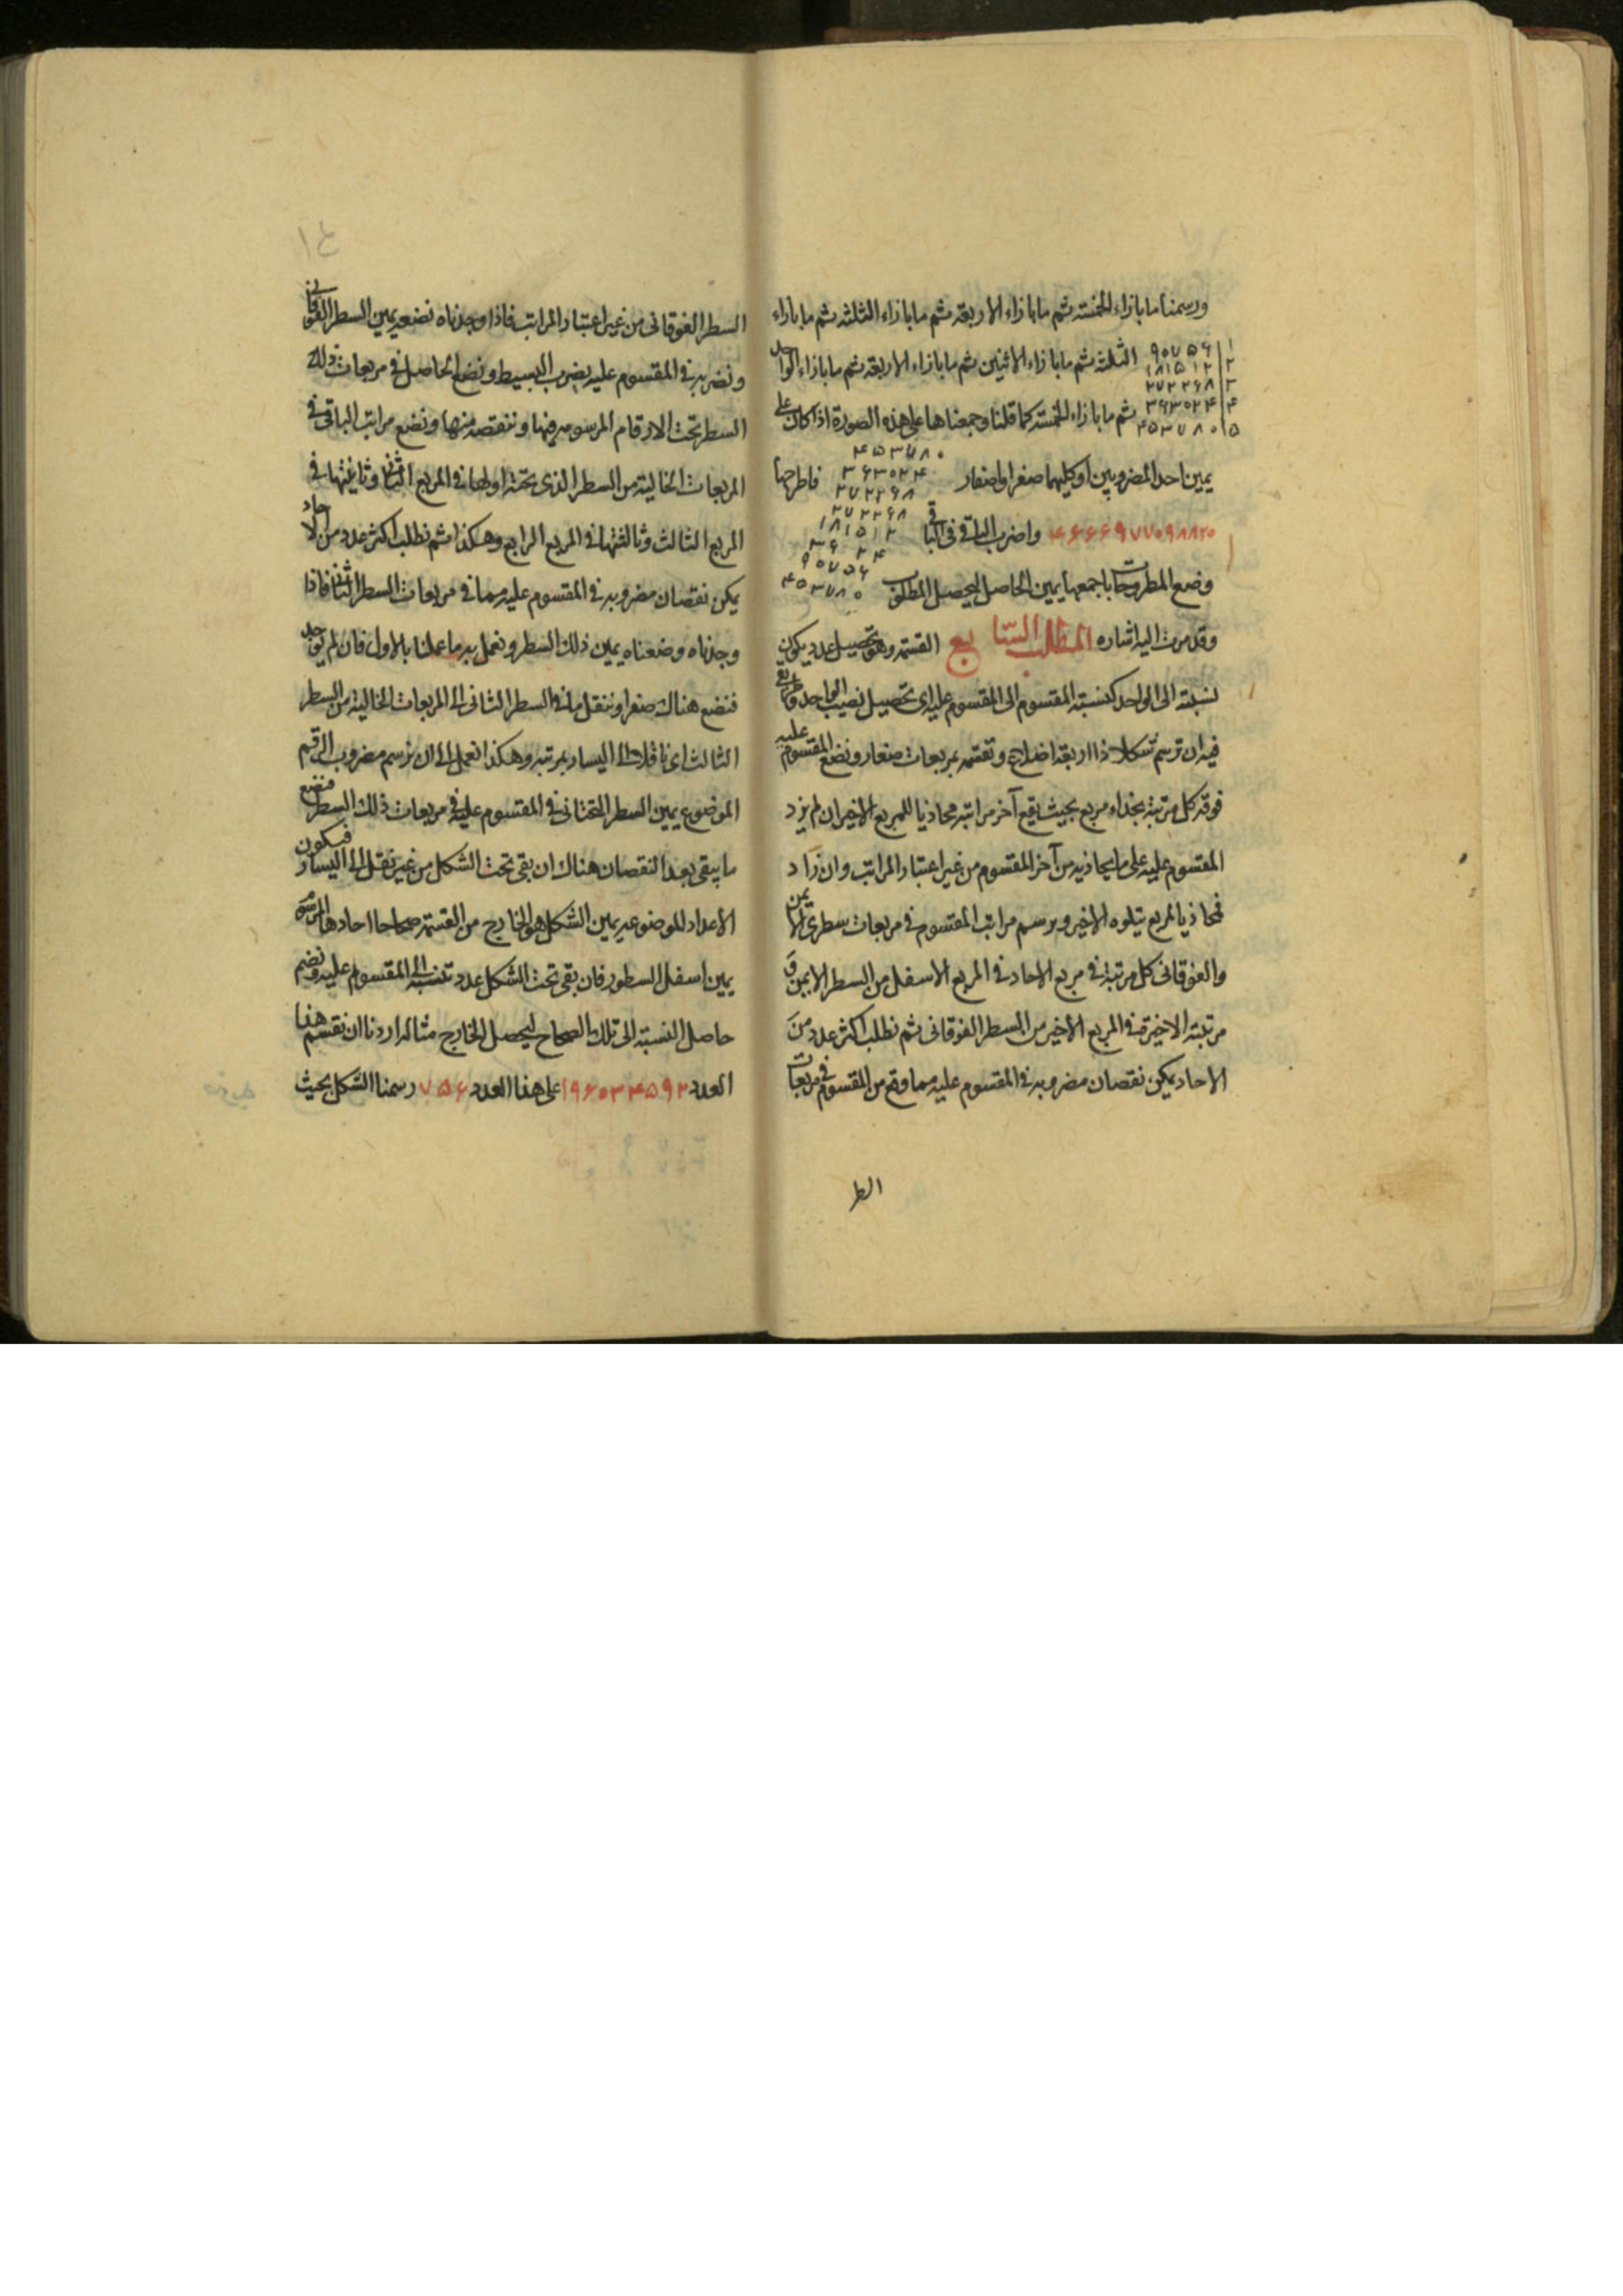 ورسمنا ما بازاء الخمسة ثم ما بازاء الاربعة ثم ما بازاء الثلثة ثم ما بازاء
۱ ۹۰۷۵۶
۲ ۱۸۱۵۱۲
۳ ۲۷۲۲۶۸
۴ ۳۶۳۰۲۴
۵ ۴۵۳۷۸۰
الثلثة ثم ما بازاء الاثنين ثم ما بازاء الاربعة ثم ما بازاء الواحد
ثم ما بازاء الخمسة كما قلنا وجمعناها على هذه الصورة اذا كان على
يمين احد المضروبين او كليهما صفر او اصفار فاطرحها
۴۵۳۷۸۰
۳۶۳۰۲۴
۲۷۲۲۶۸
۲۷۲۲۶۸
۱۸۱۵۱۲
۳۶ ۲۴
۹۰۷۵۶
۴۵۳۷۸۰
۴۶۶۶۹۷۷۰۹۸۸۲۰ واضرب الباقي في الباقي
وضع المطروحات باجمعها يمين الحاصل ليحصل المطلوب
وقد مرت اليه اشاره المطلب السابع القسمة وهو تحصيل عدد يكون
نسبته الى الواحد كنسبة المقسوم الى المقسوم عليه اى تحصيل نصيب الواحد وطريق
فيه ان ترسم شكلا ذا اربعة اضلاع وتقسمه بمربعات صغار ونضع المقسوم عليه
فوقه كل مرتبة بحذاء مربع بحيث يقع آخر مراتبه محاذيا للمربع الاخير ان لم يزد
المقسوم عليه على ما يحاذيه من آخر المقسوم من غير اعتبار المراتب وان زاد
فمحاذيا لمربع يتلوه الاخير ويرسم مراتب المقسوم في مربعات سطرى الايمن
والفوقانى كل مرتبة في مربع الاحاد في المربع الاسفل من السطر الايمن و
مرتبة الاخيرة في المربع الاخير من السطر الفوقانى ثم نطلب اكثر عدد من
الاحاد يمكن نقصان مضروبه في المقسوم عليه مما وقع من المقسوم في مربعات
السطر
السطر الفوقانى من غير اعتبار المراتب فاذا وجدناه نضعه يمين السطر الفوقانى
ونضربه في المقسوم عليه بضرب البسيط ونضع الحاصل في مربعات ذلك
السطر تحت الارقام المرسومه فيها وننقصه منها ونضع مراتب الباقى في
المربعات الخالية من السطر الذى تحته اولها في المربع الثانى وثانيتها في
المربع الثالث وثالثتها في المربع الرابع وهكذا ثم نطلب اكثر عدد من الاحاد
يمكن نقصان مضروبه في المقسوم عليه مما في مربعات السطر الثانى فاذا
وجدناه وضعناه يمين ذلك السطر ونعمل به ما عملنا بالاول فان لم يوجد
فنضع هناك صفرا وننقل ما في السطر الثانى الى المربعات الخالية من السطر
الثالث اى ناقلا الى اليسار بمرتبه وهكذا نعمل الى ان نرسم مضروب الرقم
الموضوع يمين السطر التحتانى في المقسوم عليه في مربعات ذلك السطر فنضع
ما يبقى بعد النقصان هناك ان بقى تحت الشكل من غير نقل الى اليسار فيكون
الاعداد الموضوعه يمين الشكل هو الخارج من القسمة صحاحا احادها المرسومة
يمين اسفل السطور فان بقى تحت الشكل عدد تنسبه الى المقسوم عليه ونضم
حاصل النسبة الى تلك الصحاح ليحصل الخارج مثاله اردنا ان نقسم هذا
العدد ۱۹۶۰۳۴۵۹۲ على هذا العدد ۷۵۶ رسمنا الشكل بحيث